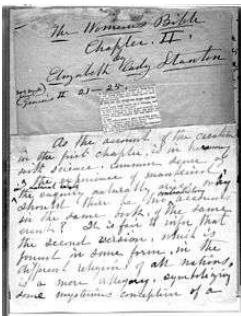 The Woman's Bible
Chapter II
by
Elizabeth Cady Stanton
Genesis II 21–25.
As the account of the creation
in the first chapter, is in harmony
with science, common sense, &
the experience of mankind in
natural laws
the enquiry naturally arises, why
should there be two contradictory accounts
in the same book, of the same
event? It is fair to infer that
the second version, which is
found in some form, in the
different religions of all nations,
is a mere allegory, symbolizing
some mysterious conception of a